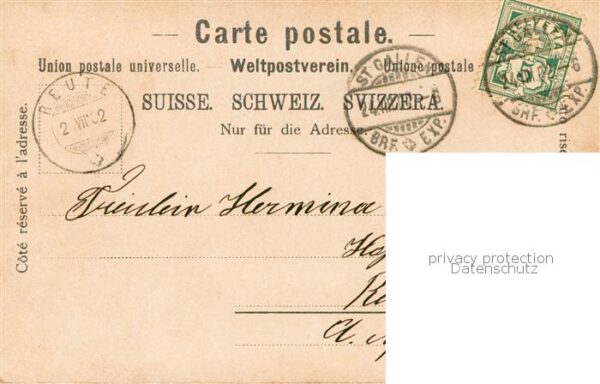 Carte postale.
Union postale universelle. — Weltpostverein. — Unione postale
SUISSE. SCHWEIZ. SVIZZERA.
Nur für die Adresse.
Côté réservé à l'adresse.
REUTE
ST. GALLEN
BRF. EXP.
HELVETIA
BRF. EXP.
Fräulein Hermina
privacy protection
Datenschutz